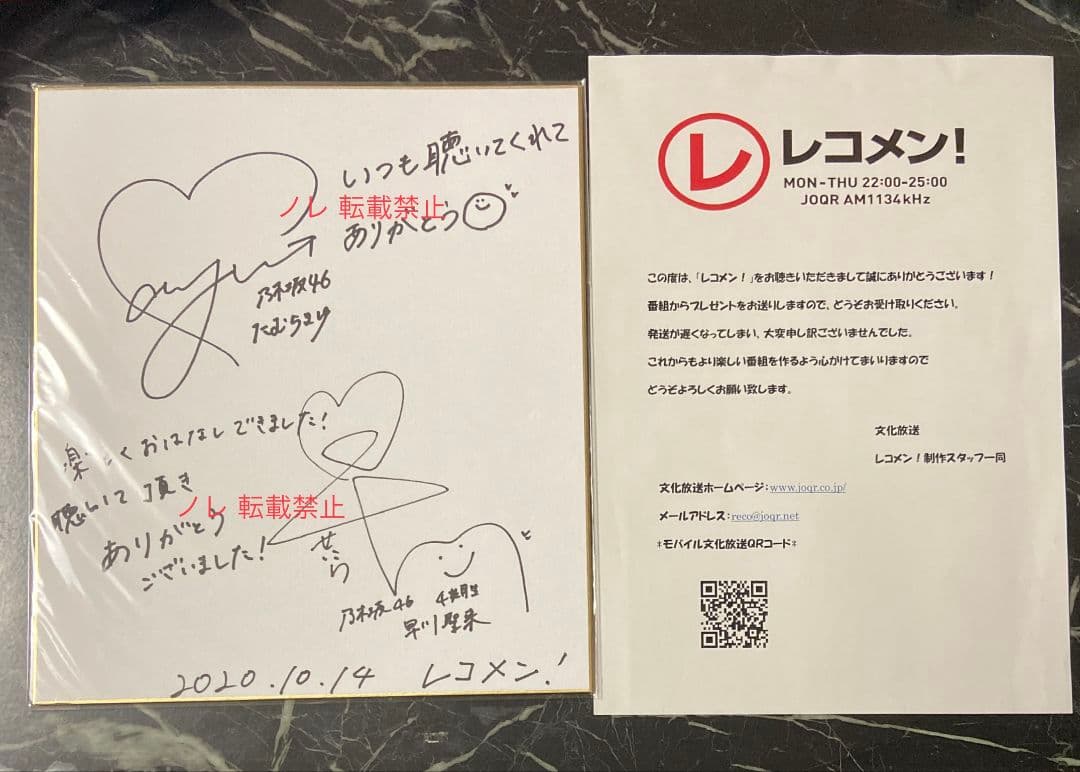 いつも聴いてくれて
ありがとう
ノレ 転載禁止
乃木坂46
たむらまゆ
楽しくおはなしできました!
聴いて頂き
ありがとう
ございました!
ノレ 転載禁止
せいら
乃木坂46 4期生
早川聖来
2020.10.14 レコメン!
レ レコメン!
MON-THU 22:00-25:00
JOQR AM1134kHz
この度は、「レコメン!」をお聴きいただきまして誠にありがとうございます!
番組からプレゼントをお送りしますので、どうぞお受け取りください。
発送が遅くなってしまい、大変申し訳ございませんでした。
これからもより楽しい番組を作るよう心がけてまいりますので
どうぞよろしくお願い致します。
文化放送
レコメン!制作スタッフ一同
文化放送ホームページ:www.joqr.co.jp/
メールアドレス:reco@joqr.net
*モバイル文化放送QRコード*